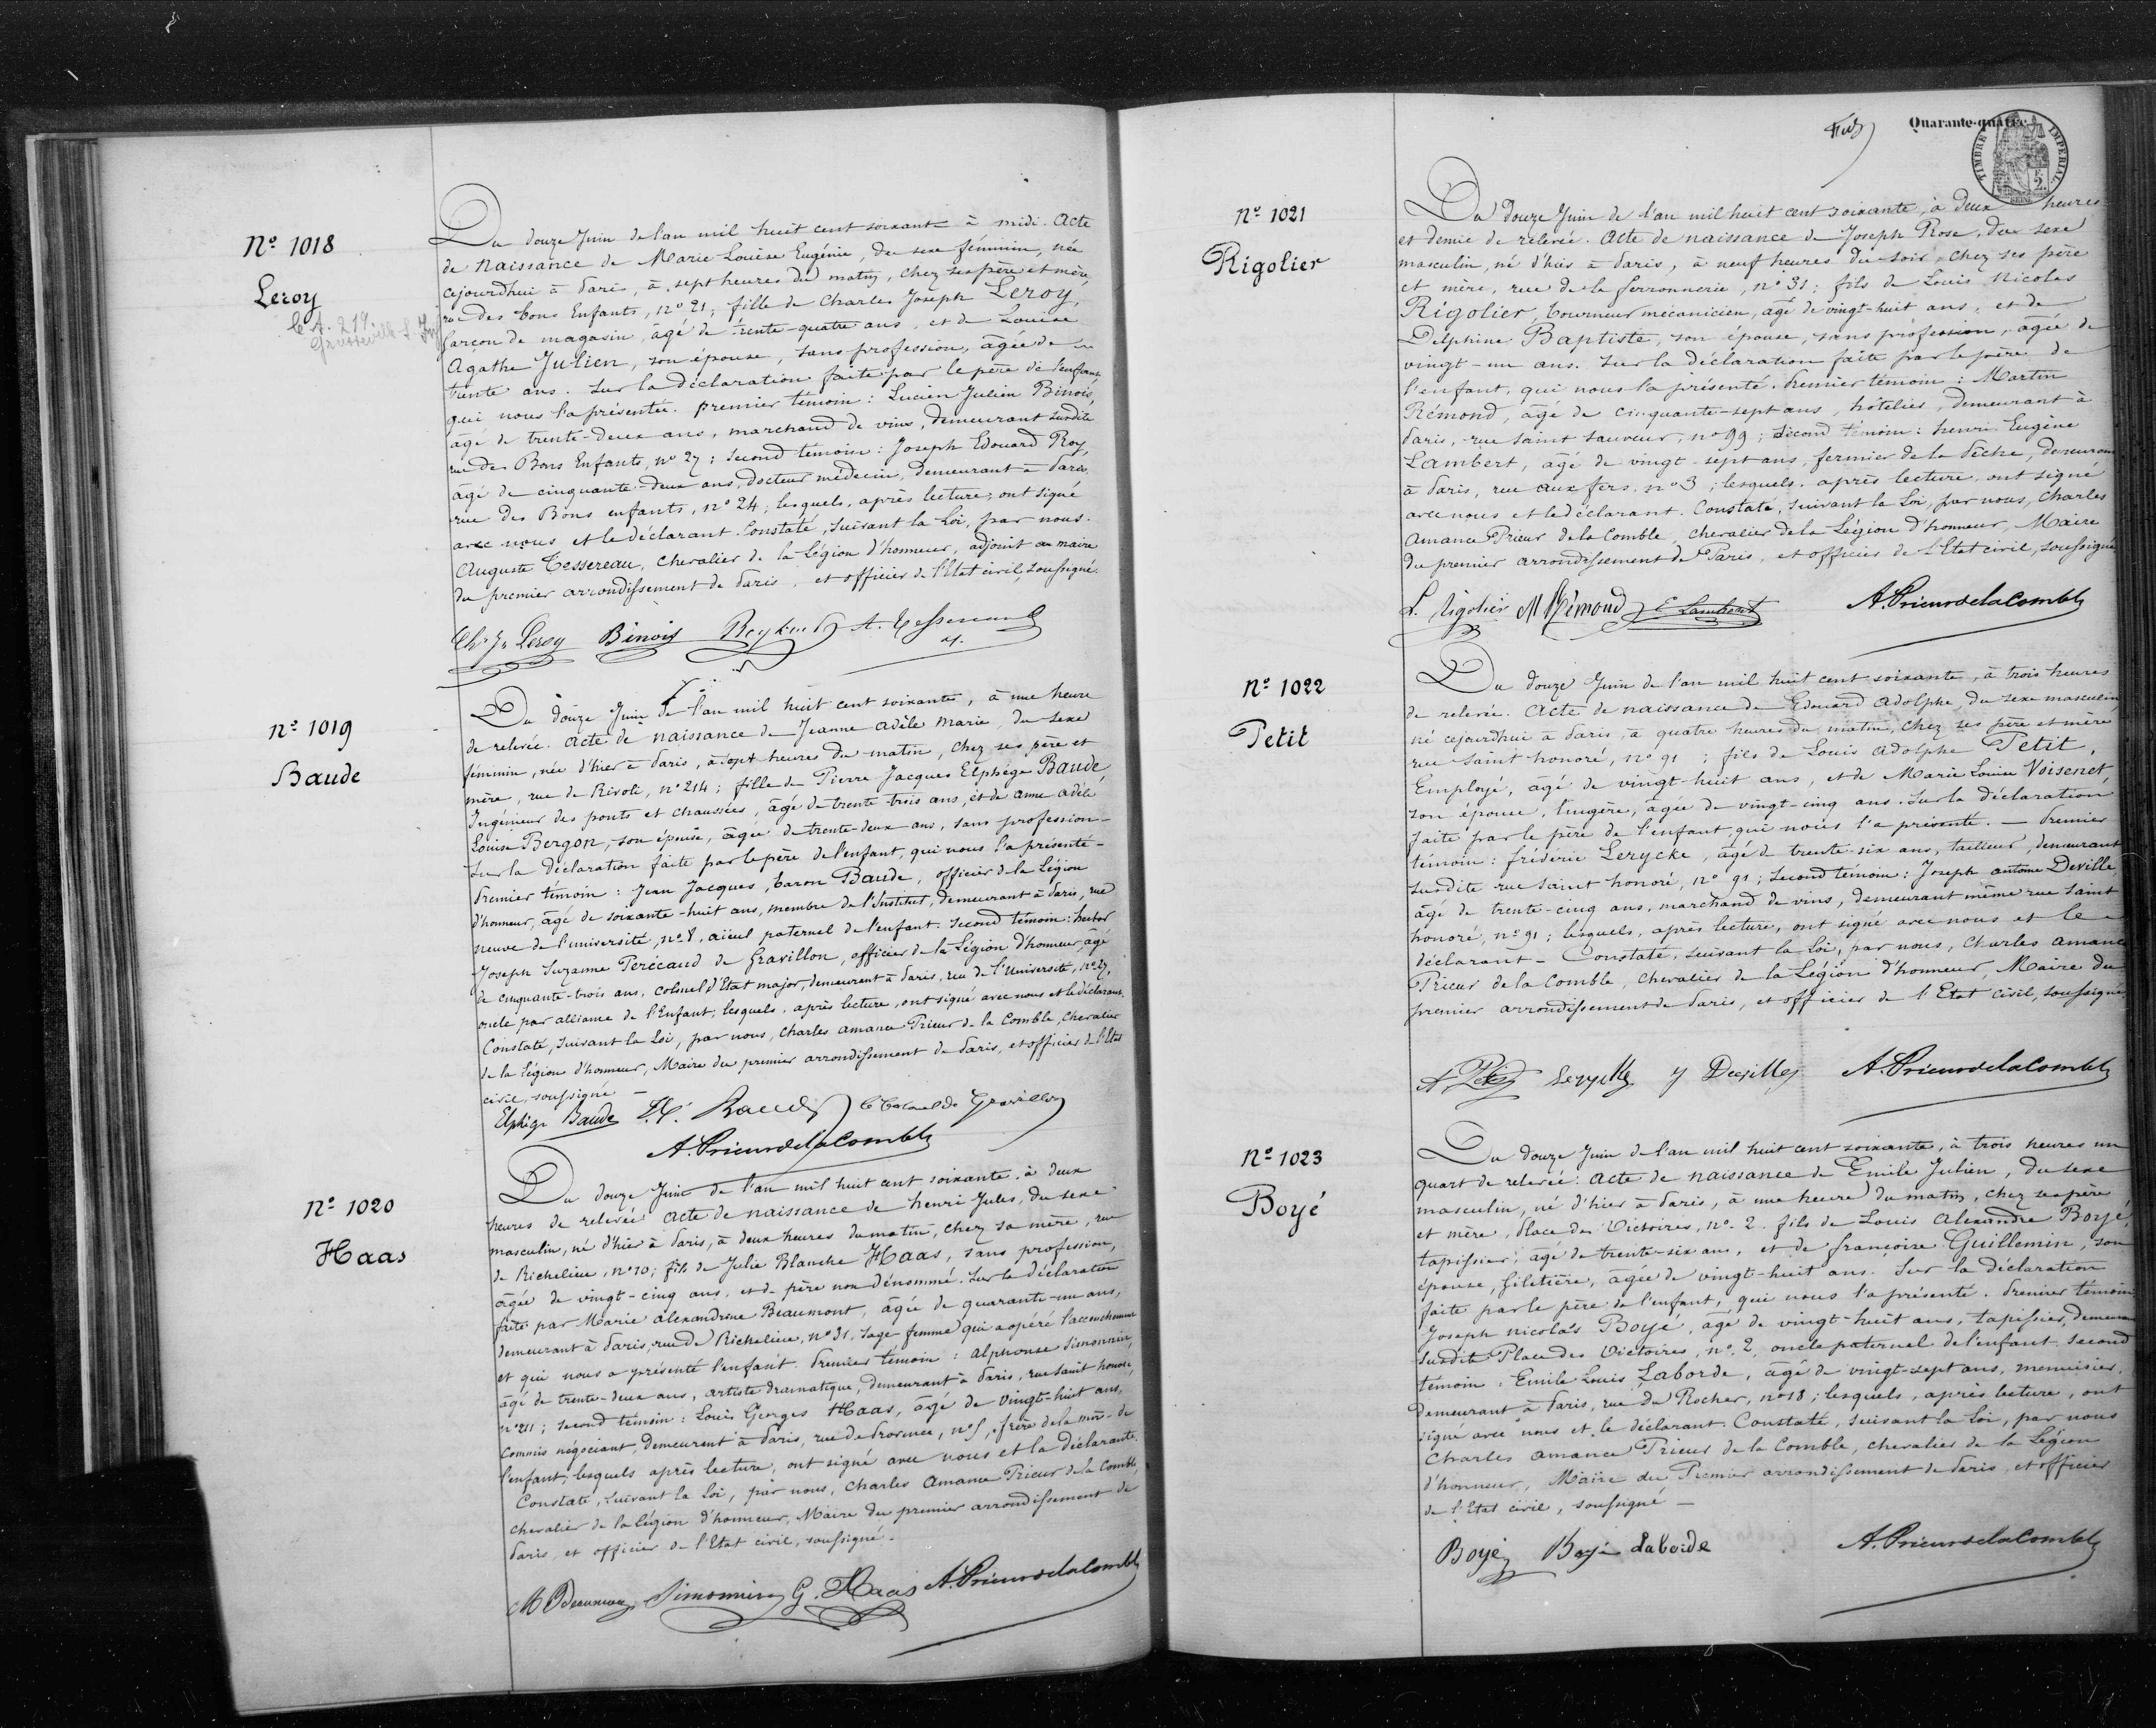 Nº 1018
Leroy
Du douze Juin de l'an mil huit cent soixante à midi. Acte
de Naissance de Marie Louise Eugénie, du sexe féminin, née
cejourdhui à Paris, à sept heures du matin, chez ses père et mère,
rue des bons Enfants, nº 21; fille de Charles Joseph Leroy,
garçon de magasin, âgé de trente-quatre ans, et de Louise
Agathe Julien, son épouse, sans profession, âgée de
trente ans. Sur la déclaration faite par le père de l'enfant
qui nous l'a présentée. premier témoin: Lucien Julien Binois,
âgé de trente-deux ans, marchand de vins, demeurant susdite
rue des Bons Enfants, nº 27; second témoin: Joseph Edouard Roy,
âgé de cinquante-deux ans, docteur médecin, demeurant à Paris,
rue des Bons enfants, nº 24; lesquels, après lecture, ont signé
avec nous et le déclarant. Constaté, suivant la Loi, par nous.
Auguste Tessereau, chevalier de la Légion d'honneur, adjoint au maire
du premier arrondissement de Paris, et officier de l'Etat civil, soussigné.
Ch. Jh Leroy Binois A. Tessereau
Nº 1019
Baude
Du douze Juin de l'an mil huit cent soixante, à une heure
de relevée. Acte de naissance de Jeanne Adèle Marie, du sexe
féminin, née d'hier à Paris, à sept heures du matin, chez ses père et
mère, rue de Rivoli, nº 214; fille de Pierre Jacques Elphège Baude,
Ingénieur des ponts et chaussées, âgé de trente-trois ans, et de Anne Adèle
Louise Bergon, son épouse, âgée de trente-deux ans, sans profession-
Sur la déclaration faite par le père de l'enfant, qui nous l'a présenté-
Premier témoin: Jean Jacques, baron Baude, officier de la Légion
d'honneur, âgé de soixante-huit ans, membre de l'Institut, demeurant à Paris, rue
neuve de l'université, nº 8, aïeul paternel de l'enfant. Second témoin: hector
Joseph Suzanne Perécaud de Gravillon, officier de la Légion d'honneur, âgé
de cinquante-trois ans, colonel d'Etat major, demeurant à Paris, rue de l'Université, nº 27,
oncle par alliance de l'Enfant; lesquels, après lecture, ont signé avec nous et le déclarant.
Constaté, suivant la Loi, par nous, Charles Amance Prieur de la Comble, chevalier
de la Légion d'honneur, Maire du premier arrondissement de Paris, et officier de l'Etat
civil, soussigné -
Elphège Baude Baude le Colonel de Gravillon
A. Prieur de la Comble
Nº 1020
Haas
Du douze Juin de l'an mil huit cent soixante, à deux
heures de relevée. Acte de naissance de henri Jules, du sexe
masculin, né d'hier à Paris, à deux heures du matin, chez sa mère, rue
de Richelieu, nº 10; fils de Julie Blanche Haas, sans profession,
âgée de vingt-cinq ans, et de père non dénommé. Sur la déclaration
faite par Marie Alexandrine Beaumont, âgée de quarante-un ans,
demeurant à Paris, rue de Richelieu, nº 31, sage femme qui a opéré l'accouchement
et qui nous a présenté l'enfant. Premier témoin: Alphonse Simonnin,
âgé de trente-deux ans, artiste dramatique, demeurant à Paris, rue Saint honoré,
nº 211; second témoin: Louis Georges Haas, âgé de vingt-huit ans,
commis négociant, demeurant à Paris, rue de Provence, nº 5, frère de la mère de
l'enfant; lesquels après lecture, ont signé avec nous et la déclarante.
Constaté, suivant la Loi, par nous, Charles Amance Prieur de la Comble,
chevalier de la légion d'honneur, Maire du premier arrondissement de
Paris, et officier de l'Etat civil, soussigné.
M Beaumont Simonnin G. Haas A. Prieur de la Comble
Quarante-quatre
TIMBRE IMPERIAL
SEINE
Nº 1021
Rigolier
Du douze Juin de l'an mil huit cent soixante, à deux heures
et demie de relevée. Acte de naissance de Joseph Rose, du sexe
masculin, né d'hier à Paris, à neuf heures du soir, chez ses père
et mère, rue de la ferronnerie, nº 31; fils de Louis Nicolas
Rigolier, tourneur mécanicien, âgé de vingt-huit ans, et de
Delphine Baptiste, son épouse, sans profession, âgée de
vingt-un ans. Sur la déclaration faite par le père de
l'enfant, qui nous l'a présenté. Premier témoin: Martin
Rémond, âgé de cinquante-sept ans, hôtelier, demeurant à
Paris, rue Saint Sauveur, nº 99; second témoin: henri Eugène
Lambert, âgé de vingt-sept ans, fermier de la Pêche, demeurant
à Paris, rue aux fers, nº 3; lesquels, après lecture, ont signé
avec nous et le déclarant. Constaté, suivant la Loi, par nous, Charles
Amance Prieur de la Comble, chevalier de la Légion d'honneur, Maire
du premier arrondissement de Paris, et officier de l'Etat civil, soussigné
L. Rigolier M Rémond E Lambert A. Prieur de la Comble
Nº 1022
Petit
Du douze Juin de l'an mil huit cent soixante, à trois heures
de relevée. Acte de naissance de Edouard Adolphe, du sexe masculin,
né cejourdhui à Paris, à quatre heures du matin, chez ses père et mère
rue Saint honoré, nº 91; fils de Louis Adolphe Petit,
Employé, âgé de vingt-huit ans, et de Marie Louise Voisenet,
son épouse, lingère, âgée de vingt-cinq ans. Sur la déclaration
faite par le père de l'enfant qui nous l'a présenté. - Premier
témoin: frédéric Lerycke, âgé de trente-six ans, tailleur, demeurant
susdite rue Saint honoré, nº 91; second témoin: Joseph antoine Deville,
âgé de trente-cinq ans, marchand de vins, demeurant même rue Saint
honoré, nº 91; lesquels, après lecture, ont signé avec nous et le
déclarant - Constaté, suivant la Loi, par nous, Charles Amance
Prieur de la Comble, chevalier de la Légion d'honneur, Maire du
premier arrondissement de Paris, et officier de l'Etat civil, soussigné.
A Petit Lerycke J Deville A. Prieur de la Comble
Nº 1023
Boyé
Du douze Juin de l'an mil huit cent soixante, à trois heures un
quart de relevée: Acte de naissance de Emile Julien, du sexe
masculin, né d'hier à Paris, à une heure du matin, chez ses père
et mère, Place des Victoires, nº 2. fils de Louis Alexandre Boyé,
tapissier, âgé de trente-six ans, et de françoise Guillemin, son
épouse, giletière, âgée de vingt-huit ans. Sur la déclaration
faite par le père de l'enfant, qui nous l'a présenté. Premier témoin
Joseph Nicolas Boyé, âgé de vingt-huit ans, tapissier, demeurant
susdite Place des Victoires, nº 2, oncle paternel de l'enfant. second
témoin: Emile Louis Laborde, âgé de vingt-sept ans, menuisier,
demeurant à Paris, rue du Rocher, nº 18; lesquels, après lecture, ont
signé avec nous et le déclarant. Constaté, suivant la Loi, par nous
Charles Amance Prieur de la Comble, chevalier de la Légion
d'honneur, Maire du Premier arrondissement de Paris, et officier
de l'Etat civil, soussigné -
Boyé Boyé Laborde A. Prieur de la Comble